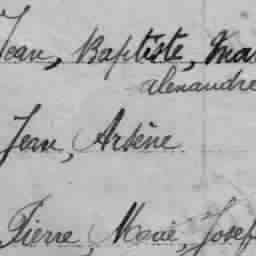 Jean, Baptiste, Mar
alexandre
Jean, Arsène
Pierre, Marie, Josef